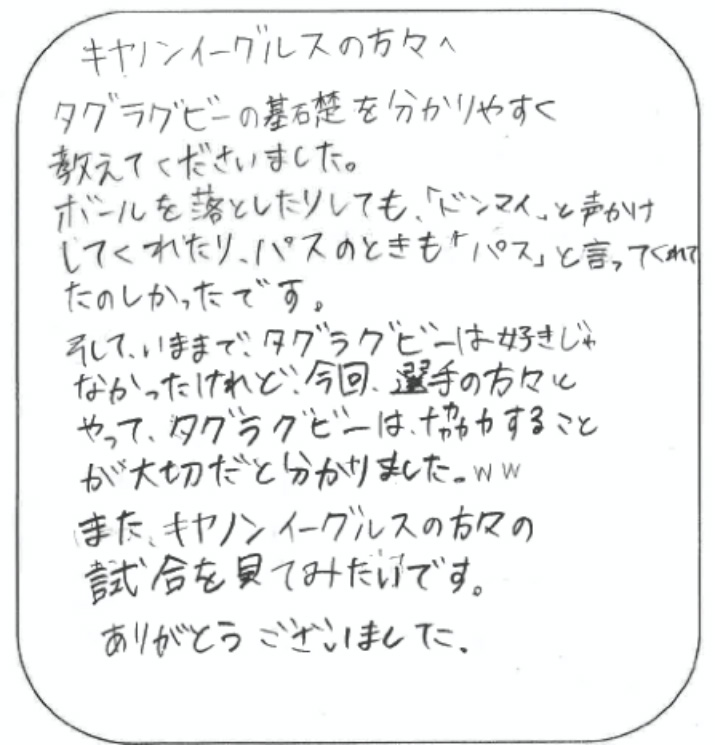 キヤノンイーグルスの方々へ
タグラグビーの基礎を分かりやすく
教えてくださいました。
ボールを落としたりしても、「ドンマイ」と声かけ
してくれたり、パスのときも「パス」と言ってくれて
たのしかったです。
そして、いままで、タグラグビーは好きじゃ
なかったけれど、今回、選手の方々と
やって、タグラグビーは、協力すること
が大切だと分かりました。ww
また、キヤノンイーグルスの方々の
試合を見てみたいです。
ありがとうございました。